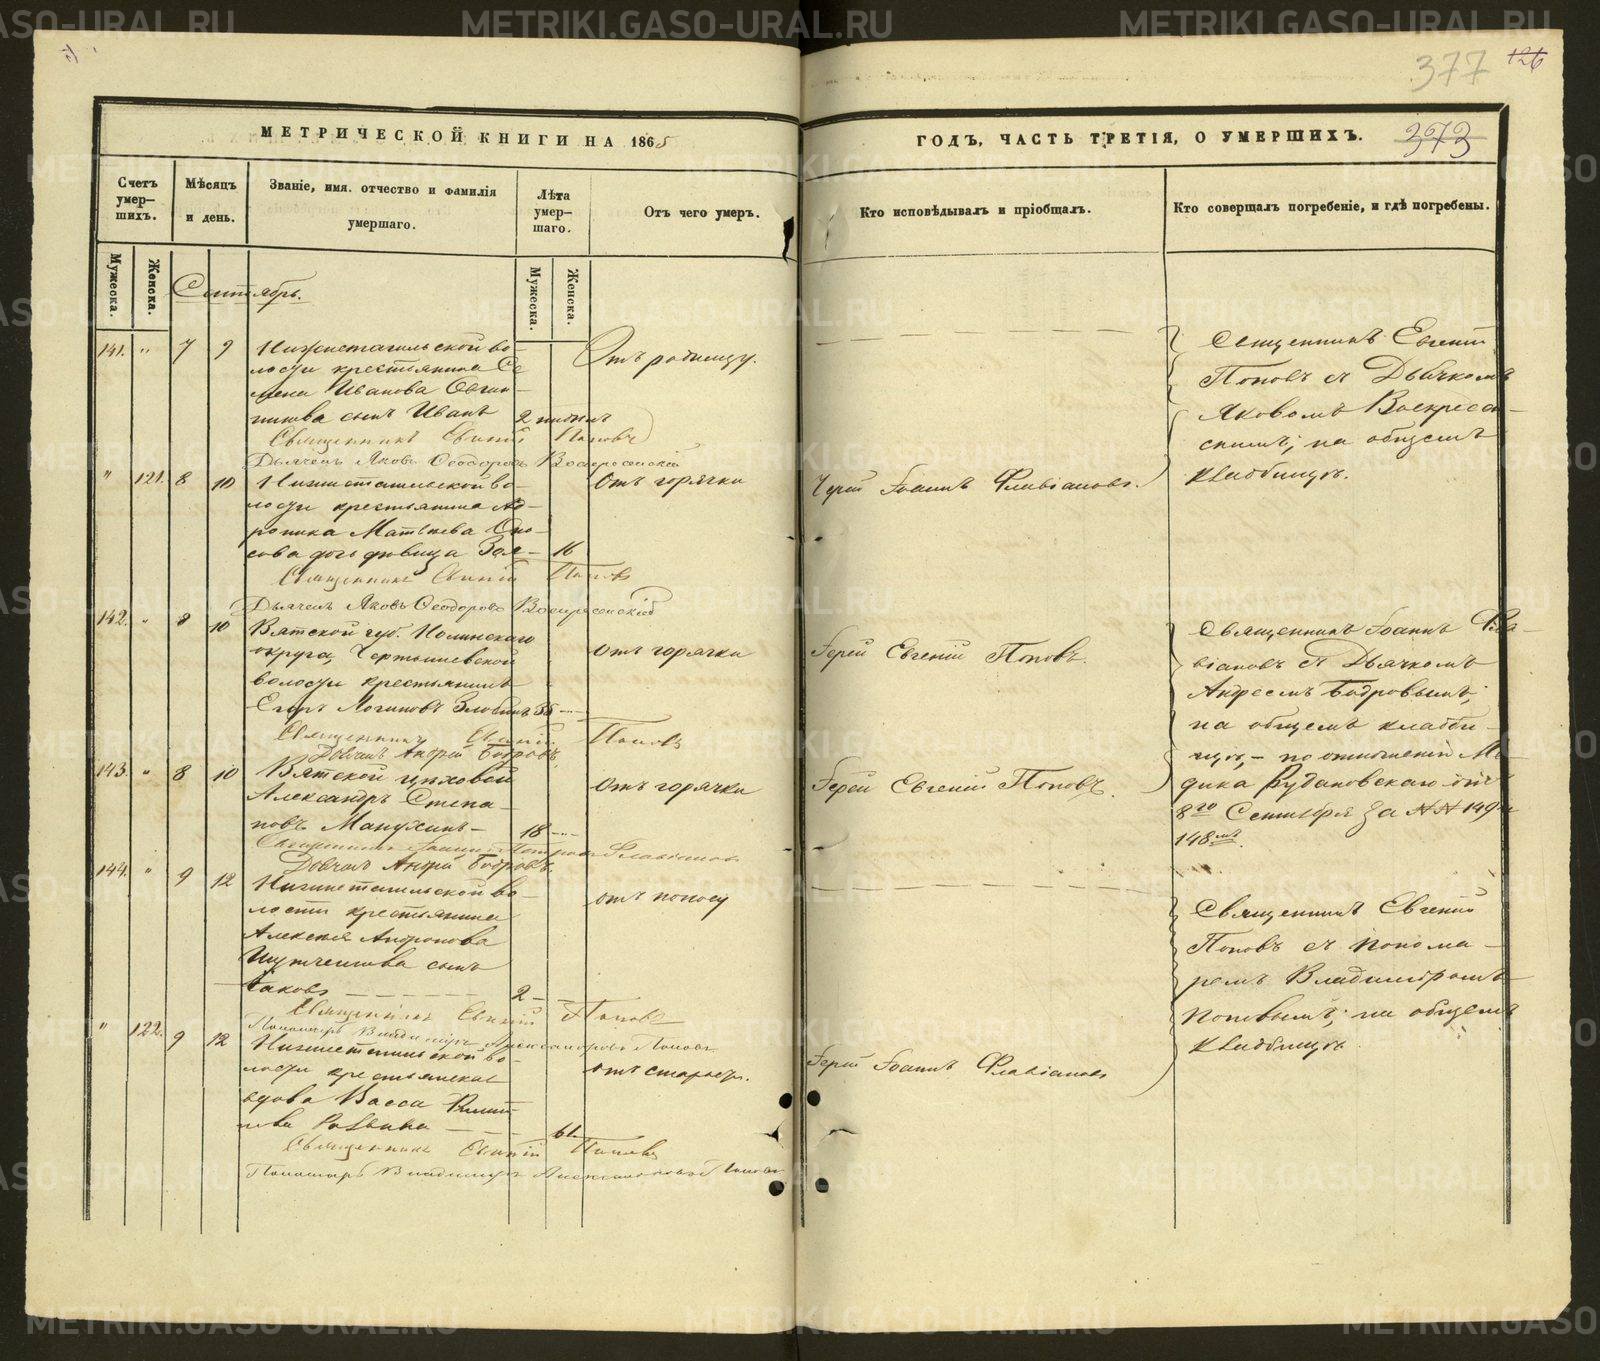 377
126
373
МЕТРИЧЕСКОЙ КНИГИ НА 1865
ГОДЪ, ЧАСТЬ ТРЕТІЯ, О УМЕРШИХЪ.
Счетъ умер-
шихъ.
Мѣсяцъ
и день.
Званіе, имя. отчество и фамилія
умершаго.
Лѣта
умер-
шаго.
Отъ чего умеръ.
Кто исповѣдывалъ и пріобщалъ.
Кто совершалъ погребеніе, и гдѣ погребены.
Мужеска.
Женска.
Мужеска.
Женска.
Сентябрь.
141. " 7 9
Нижнетагильской во-
лости крестьянина Се
мена Иванова
сынъ Иванъ
2 недѣль
Отъ родимцу.
Священникъ Евгеній Поповъ
Дьячекъ Яковъ Ѳеодоровъ Воскресенскій
Священникъ Евгеній
Поповъ съ Дьячкомъ
Яковомъ Воскресен-
скимъ; на общемъ
кладбищѣ.
" 121. 8 10
Нижнетагильской во-
лости крестьянина Ан-
роника Матвѣева
дочь дѣвица
16
Отъ горячки
Іерей Іоаннъ Флавіановъ.
Священникъ Евгеній Поповъ
Дьячекъ Яковъ Ѳеодоровъ Воскресенскій
142. " 8 10
Вятской губ. Нолинскаго
округа,
волости крестьянинъ
Егоръ Логиновъ
отъ горячки
Іерей Евгеній Поповъ.
Священникъ Евгеній Поповъ
Андрей Бобровъ.
Священникъ Іоаннъ Фла-
віановъ съ Дьячкомъ
Андреемъ Бобровымъ;
на общемъ кладби-
щѣ, - по отношеній Ме-
дика Рудановскаго отъ
8го Сентября за №№ 149 и
148мъ.
143. " 8 10
Вятской цеховой
Александръ Степа-
новъ Манухинъ
18
Отъ горячки
Іерей Евгеній Поповъ.
Священникъ Іоаннъ Петровъ Флавіановъ
Андрей Бобровъ.
144. " 9 12
Нижнетагильской во-
лости крестьянина
Алексѣя Андронова
сынъ
Іаковъ
2
отъ поносу
Священникъ Евгеній Поповъ
Пономарь Владиміръ Александровъ Поповъ
Священникъ Евгеній
Поповъ съ понома-
ремъ Владиміромъ
Поповымъ; на общемъ
кладбищѣ.
" 122. 9 12
Нижнетагильской во-
лости крестьянская
вдова Васса
61
отъ старости.
Іерей Іоаннъ Флавіановъ
Священникъ Евгеній Поповъ
Пономарь Владиміръ Александровъ Поповъ
METRIKI.GASO-URAL.RU